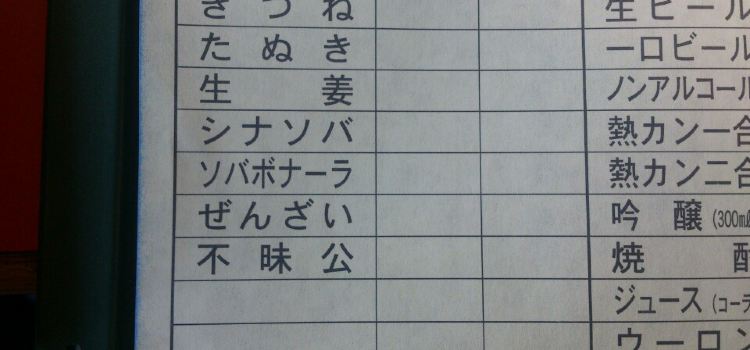 きつね
たぬき
生姜
シナソバ
ソバボナーラ
ぜんざい
不昧公
生ビール
一口ビール
ノンアルコール
熱カン一合
熱カン二合
吟醸(300ml
焼酎
ジュース(コー
ウーロン